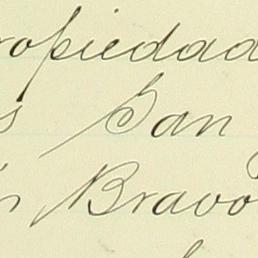 ropiedad
s San
n Bravo